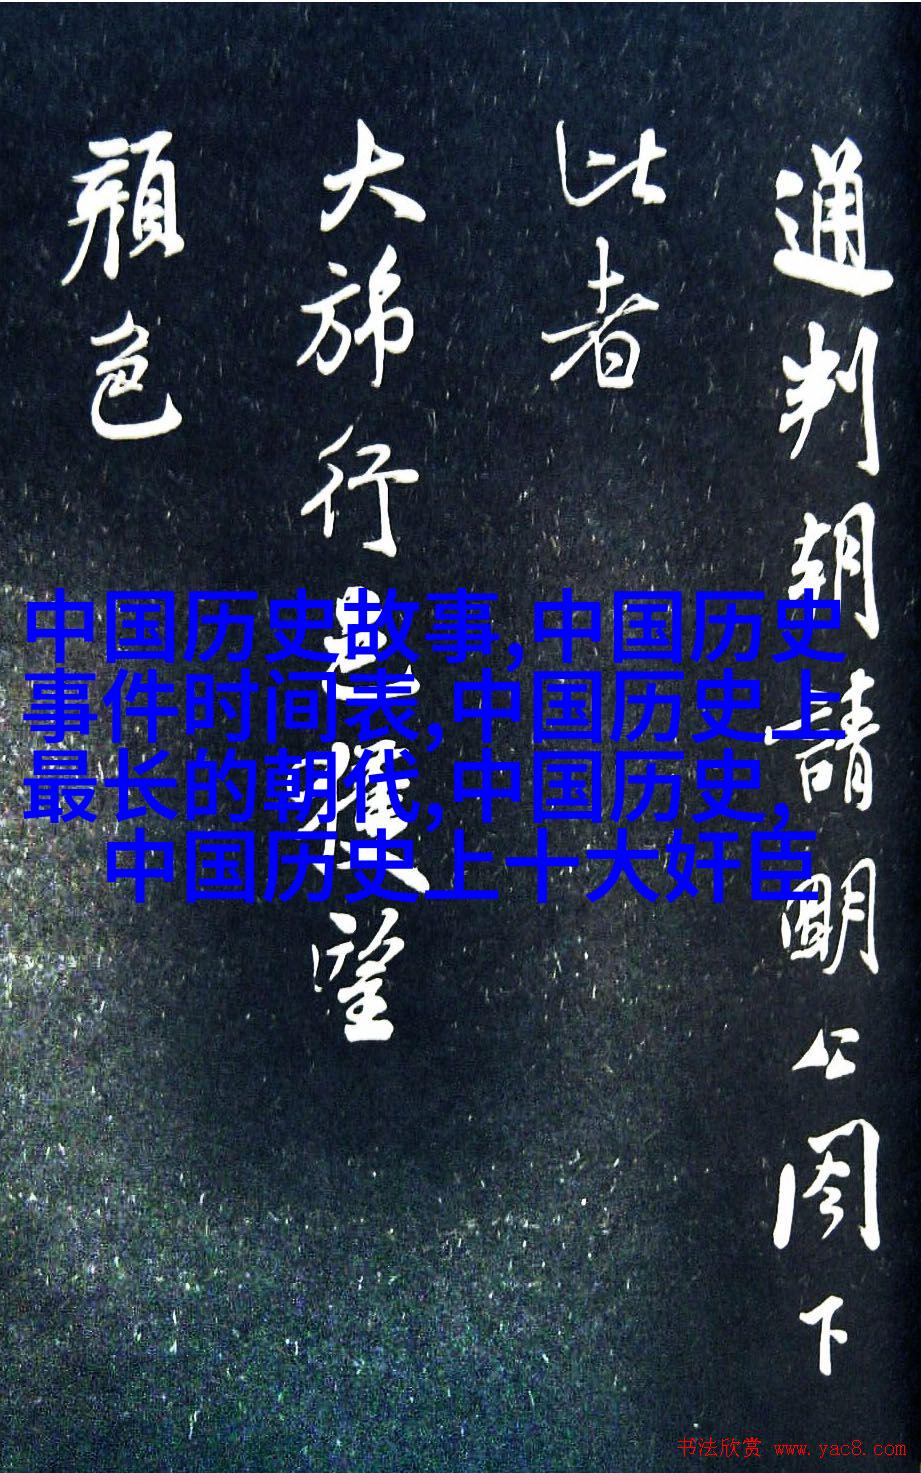 通判朝請明公閤下
此者
大旆行獲望
顏色
中国历史故事,中国历史
事件时间表,中国历史上
最长的朝代,中国历史,
中国历史上十大奸臣
书法欣赏 www.yac8.com